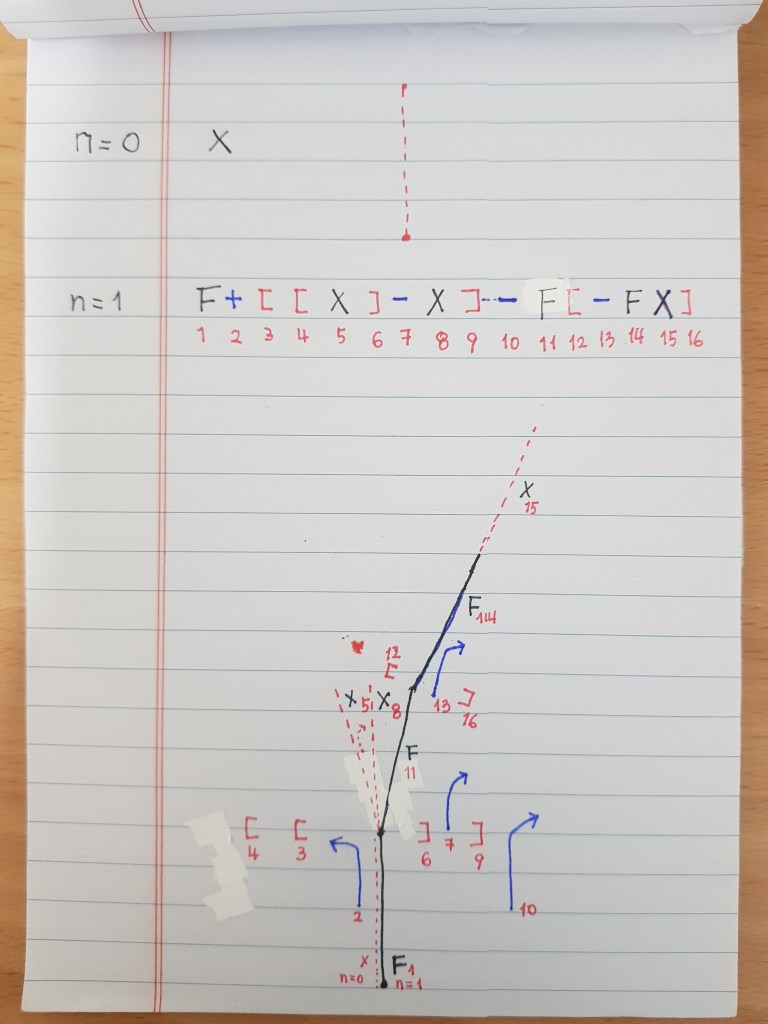 n=0 X
n=1 F+[[X]-X]--F[-FX]
1 2 3 4 5 6 7 8 9 10 11 12 13 14 15 16
X
15
F
14
12
[
X 5 X 8
13 ]
16
F
11
[ [ ] 7 ]
4 3 6 9
2 10
X F1
n=0 n=1